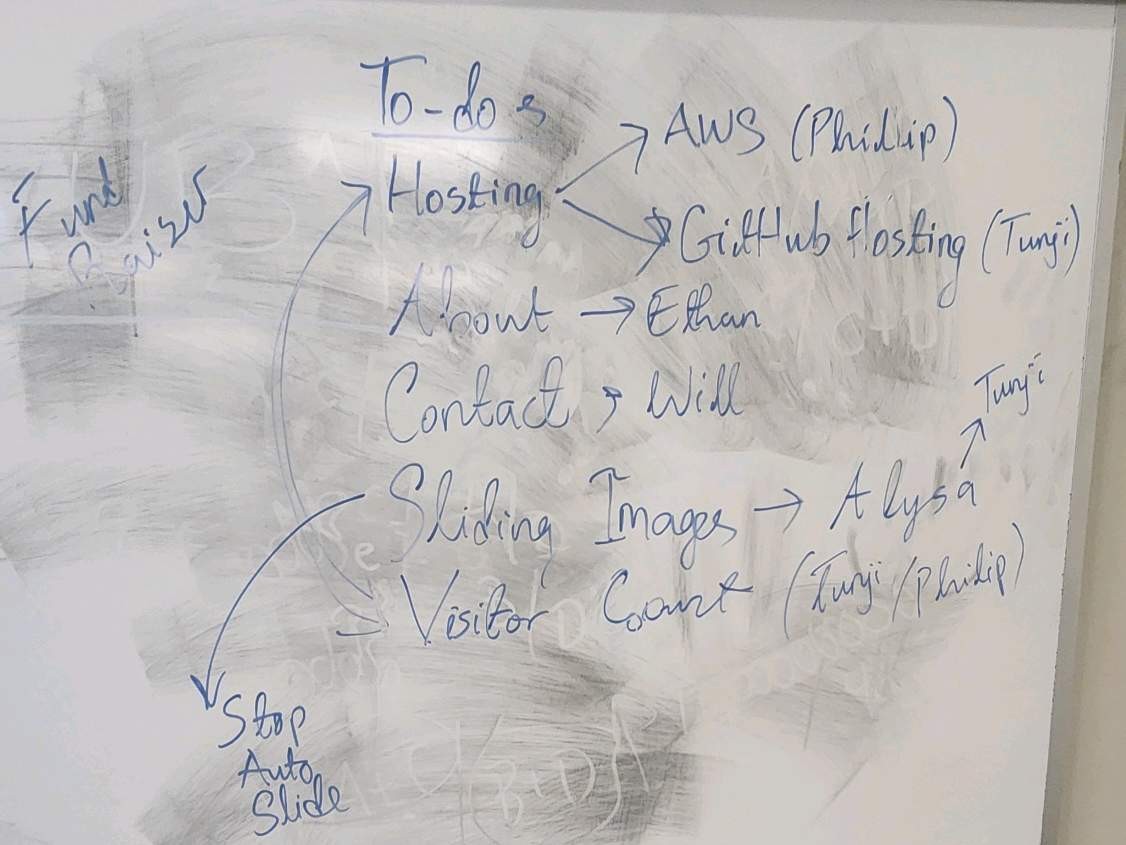 To-dos
Hosting → AWS (Phillip)
→ GitHub Hosting (Tunji)
Fund
Raiser
About → Ethan
Contact → Will
Sliding Images → Alysa → Tunji
Visitor Count (Tunji/Philip)
Stop
Auto
Slide